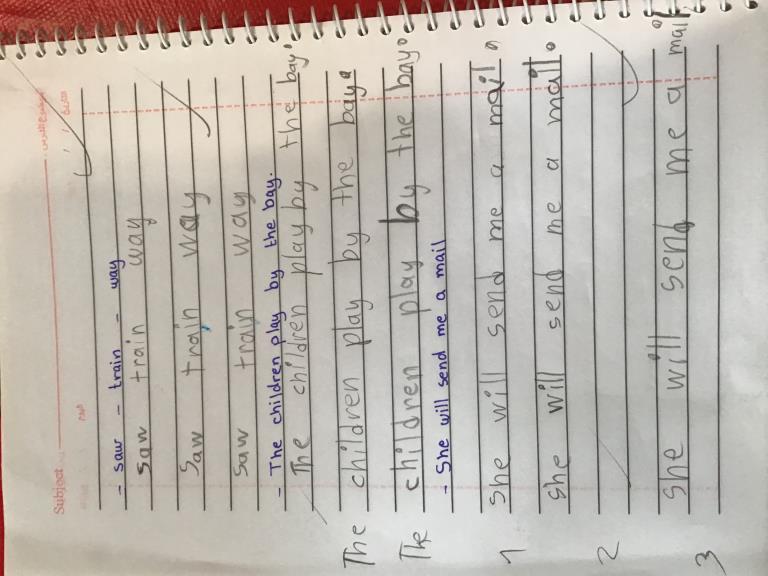 Subject
- saw - train - way
saw train way
saw train way
saw train way
- The children play by the bay.
The children play by the bay.
The children play by the bay.
The children play by the bay.
- She will send me a mail
1 she will send me a mail.
2 she will send me a mail.
3 she will send me a mail